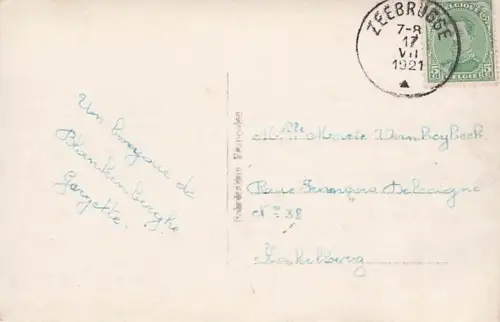 ZEEBRUGGE
7-8
17
VII
1921
BELGIQUE
5 5
BELGIE
Un bonjour de
Blankenberghe
Georgette.
Melle Marie Vanheybeek
Rue François Delavigne
N° 38
Koekelberg